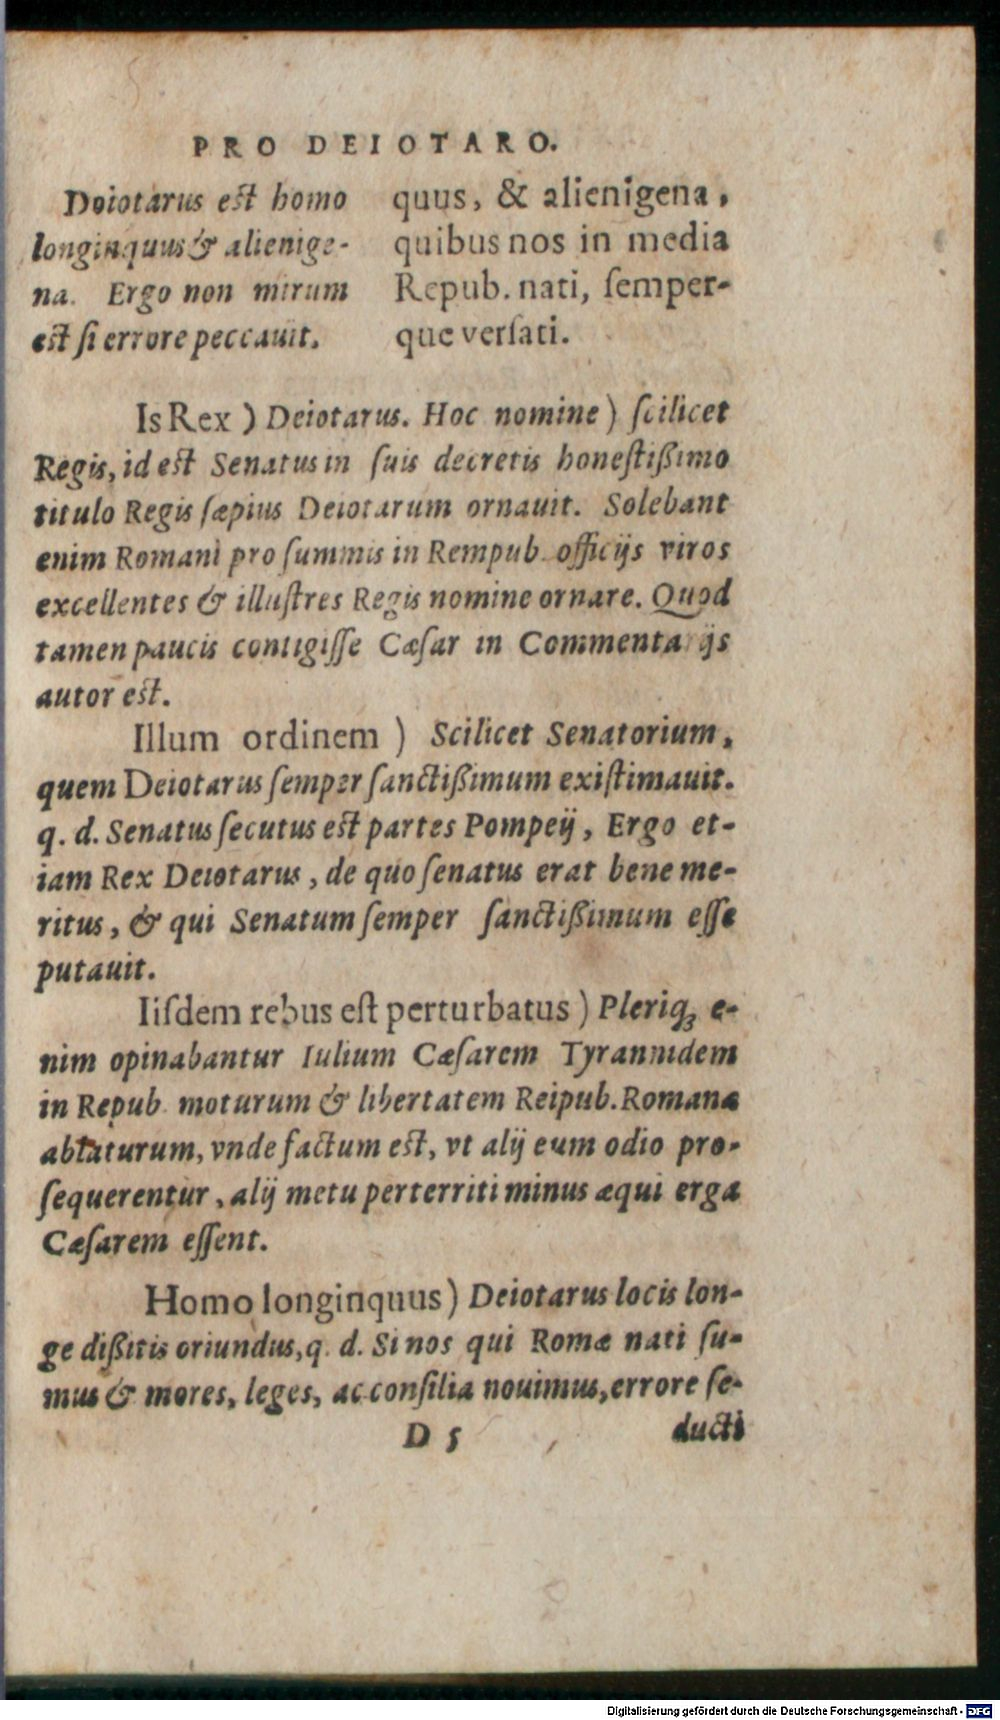 PRO DEIOTARO.
Doiotarus est homo
longinquus & alienige-
na. Ergo non mirum
est si errore peccauit.
quus, & alienigena,
quibus nos in media
Repub. nati, semper-
que versati.
Is Rex ) Deiotarus. Hoc nomine ) scilicet
Regis, id est Senatus in suis decretis honestißimo
titulo Regis sæpius Deiotarum ornauit. Solebant
enim Romani pro summis in Rempub. officijs viros
excellentes & illustres Regis nomine ornare. Quod
tamen paucis contigisse Cæsar in Commentarijs
autor est.
Illum ordinem ) Scilicet Senatorium,
quem Deiotarus semper sanctißimum existimauit.
q. d. Senatus secutus est partes Pompeij, Ergo et-
iam Rex Deiotarus, de quo senatus erat bene me-
ritus, & qui Senatum semper sanctißimum esse
putauit.
Iisdem rebus est perturbatus ) Pleriq; e-
nim opinabantur Iulium Cæsarem Tyrannidem
in Repub. moturum & libertatem Reipub. Romanæ
ablaturum, vnde factum est, vt alij eum odio pro-
sequerentur, alij metu perterriti minus æqui erga
Cæsarem essent.
Homo longinquus ) Deiotarus locis lon-
ge dißitis oriundus, q. d. Si nos qui Romæ nati su-
mus & mores, leges, ac consilia nouimus, errore se-
D 5 ducti
Digitalisierung gefördert durch die Deutsche Forschungsgemeinschaft - DFG